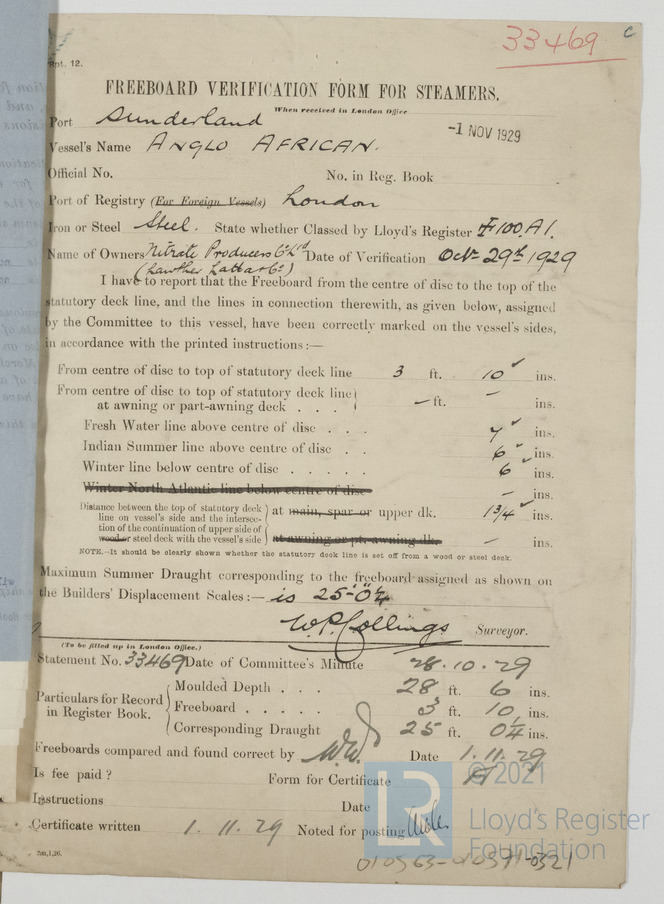 33469
c
Rpt. 12.
FREEBOARD VERIFICATION FORM FOR STEAMERS.
When received in London Office
Port Sunderland
-1 NOV 1929
Vessel's Name ANGLO AFRICAN.
Official No. No. in Reg. Book
Port of Registry (For Foreign Vessels) London
Iron or Steel Steel. State whether Classed by Lloyd's Register 100.A1.
Name of Owners Nitrate Producers Co Ltd Date of Verification Oct 29th 1929
(Lawther Latta & Co)
I have to report that the Freeboard from the centre of disc to the top of the
statutory deck line, and the lines in connection therewith, as given below, assigned
by the Committee to this vessel, have been correctly marked on the vessel's sides,
in accordance with the printed instructions :—
From centre of disc to top of statutory deck line 3 ft. 10 ins.
From centre of disc to top of statutory deck line
at awning or part-awning deck . . . – ft. – ins.
Fresh Water line above centre of disc . . . 7 ins.
Indian Summer line above centre of disc . . 6 ins.
Winter line below centre of disc . . . . . 6 ins.
Winter North Atlantic line below centre of disc – ins.
Distance between the top of statutory deck
line on vessel's side and the intersec-
tion of the continuation of upper side of
wood or steel deck with the vessel's side
at main, spar or upper dk. 1 3/4 ins.
at awning or pt. awning dk. – ins.
NOTE.—It should be clearly shown whether the statutory deck line is set off from a wood or steel deck.
Maximum Summer Draught corresponding to the freeboard assigned as shown on
the Builders' Displacement Scales :— is 25'-0¼"
W.P. Collings Surveyor.
(To be filled up in London Office.)
Statement No. 33469 Date of Committee's Minute 28.10.29
Particulars for Record
in Register Book.
Moulded Depth . . . 28 ft. 6 ins.
Freeboard . . . . . 3 ft. 10 ins.
Corresponding Draught 25 ft. 0¼ ins.
Freeboards compared and found correct by Date 1.11.29
Is fee paid ? Form for Certificate
Instructions Date
Certificate written 1.11.29 Noted for posting
2m,1,26.
© 2021
LR
Lloyd's Register
Foundation
010363-010371-0321